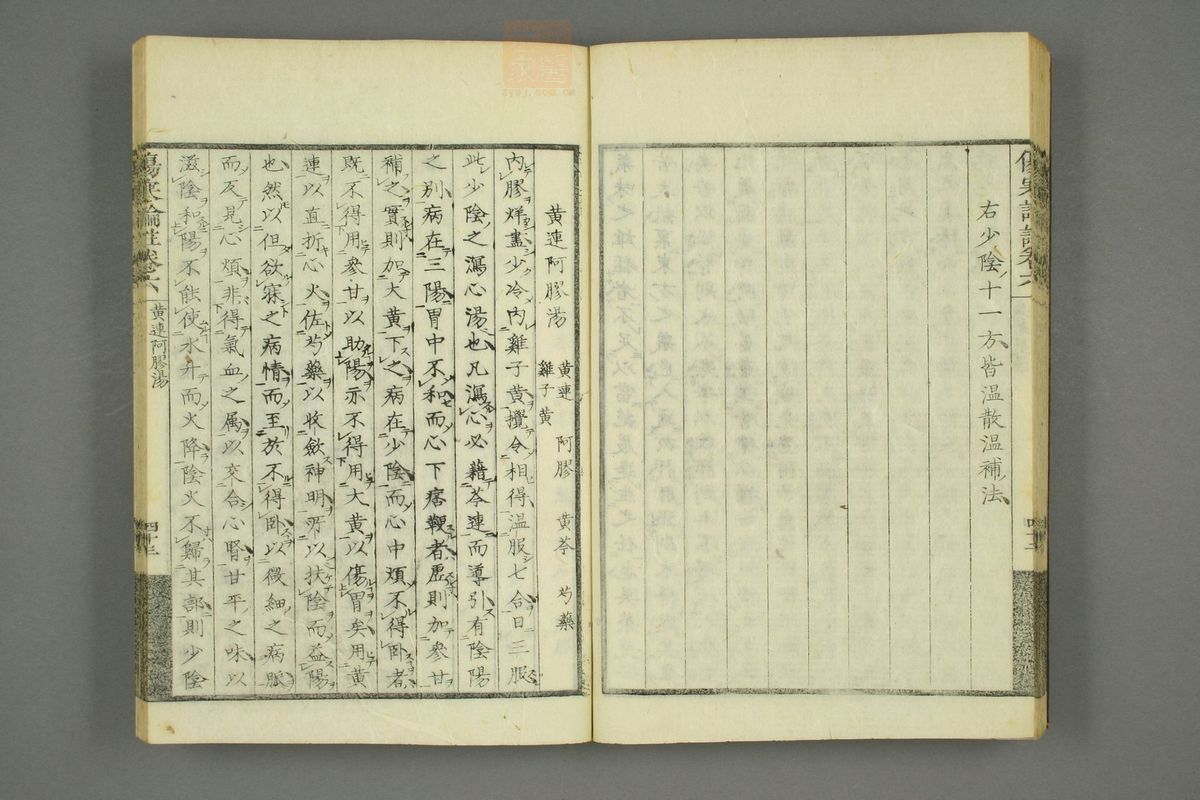 右少陰十一方皆温散温補法
黄連阿膠湯
黄連 阿膠 黄芩 芍藥
雞子黄
内膠烊盡少冷内雞子黄攪令相得温服七合日三服
此少陰之瀉心湯也凡瀉心必藉芩連而導引有陰陽
之别病在三陽胃中不和而心下痞鞕者虚則加參甘
補之實則加大黄下之病在少陰而心中煩不得卧者
既不得用參甘以助陽亦不得用大黄以傷胃矣用黄
連以直折心火佐芍藥以收斂神明所以扶陰而益陽
也然以但欲寐之病情而至於不得卧以微細之病脈
而反見心煩非得氣血之属以交合心腎甘平之味以
滋陰和陽不能使水升而火降陰火不歸其部則少陰
傷寒論註卷六
黄連阿膠湯
四十三